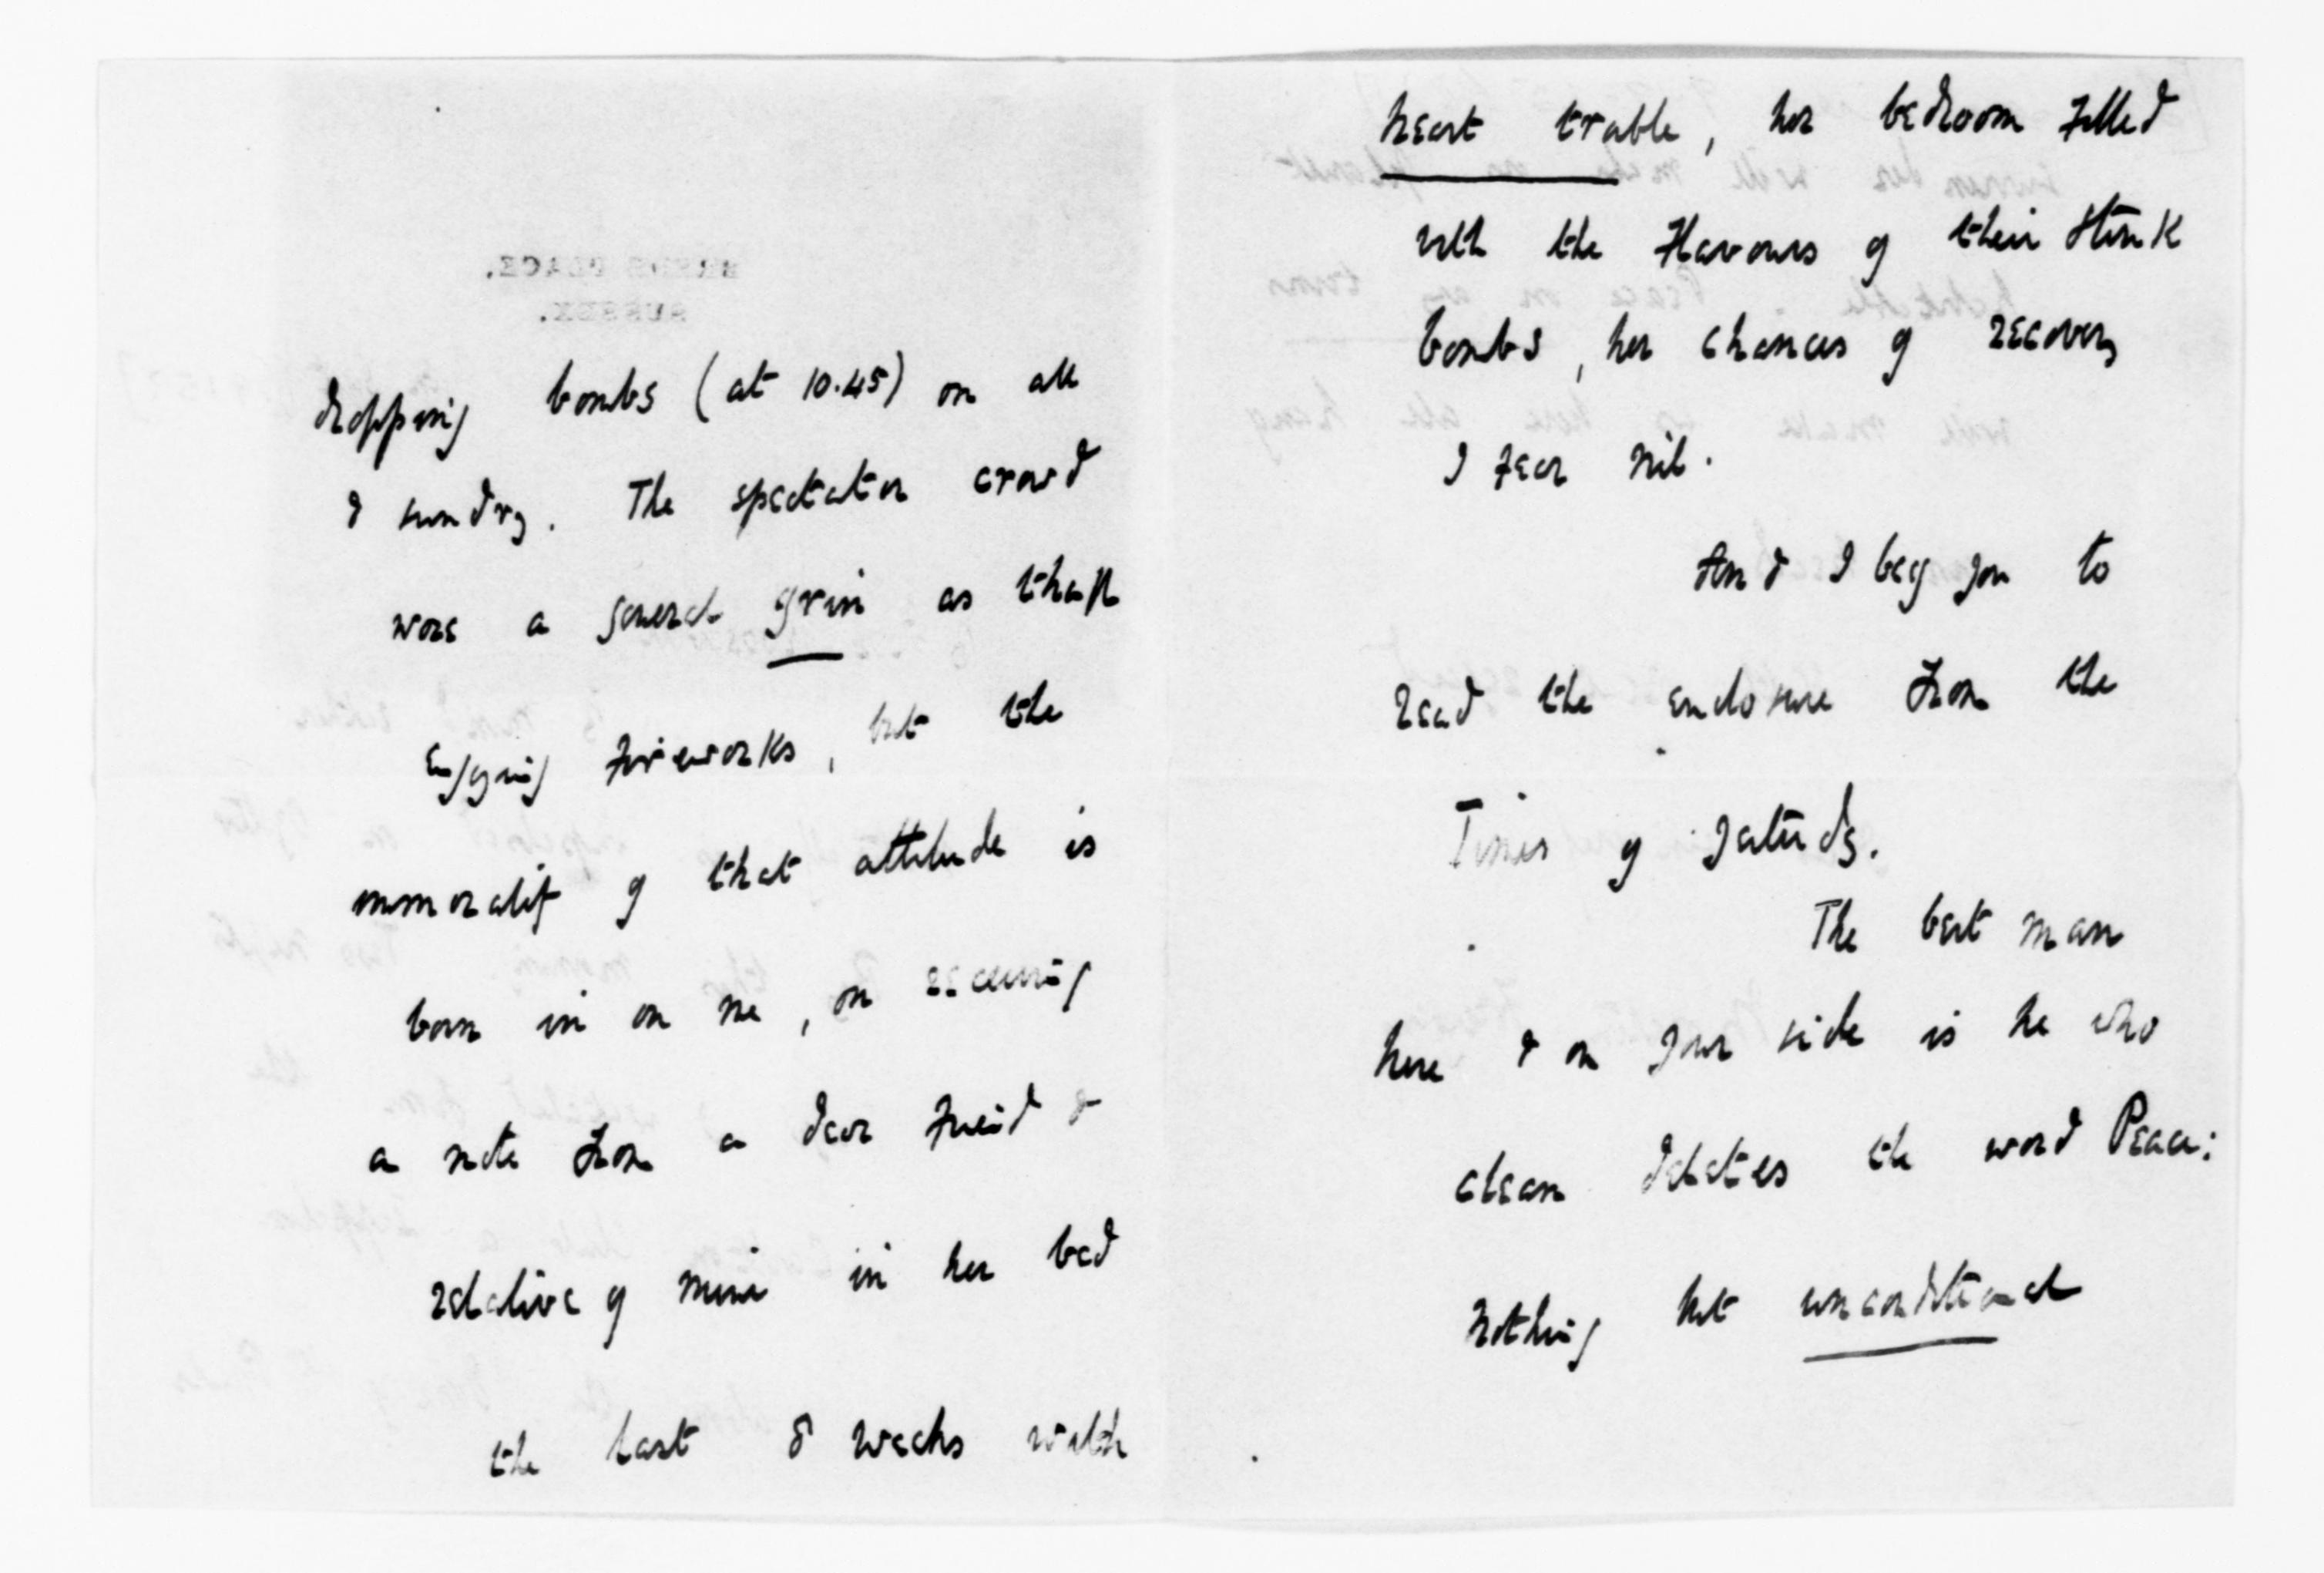 dropping bombs (at 10.45) on all
& sundry. The spectator crowd
wore a general grin as tho'
enjoying fireworks, but the
immorality of that attitude is
born in on me, on receiving
a note from a dear friend &
relative of mine in her bed
the last 8 weeks with
heart trouble, her bedroom filled
with the flavours of their stink
bombs, her chances of recovery
I fear nil.
And I beg you to
read the enclosure from the
Times of Saturday.
The best man
here & on your side is he who
clean deletes the word Peace:
nothing but unconditional